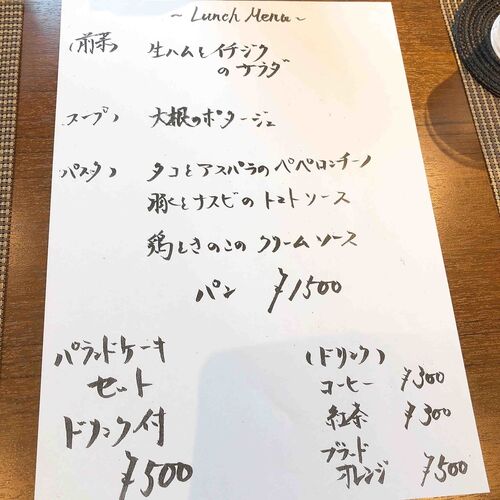 ~ Lunch Menu ~
(前菜) 生ハムとイチジク
のサラダ
(スープ) 大根のポタージュ
(パスタ) タコとアスパラのペペロンチーノ
豚とナスビのトマトソース
鶏ときのこのクリームソース
パン ¥1500
パウンドケーキ
セット
ドリンク付
¥500
(ドリンク)
コーヒー ¥300
紅茶 ¥300
ブラッド
オレンジ ¥500